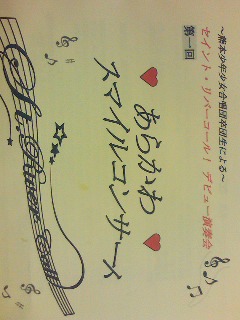 ～熊本少年少女合唱団卒団生による～
セイント・リバーコール！ デビュー演奏会
第一回
あらかわ
スマイルコンサート
St. River Call